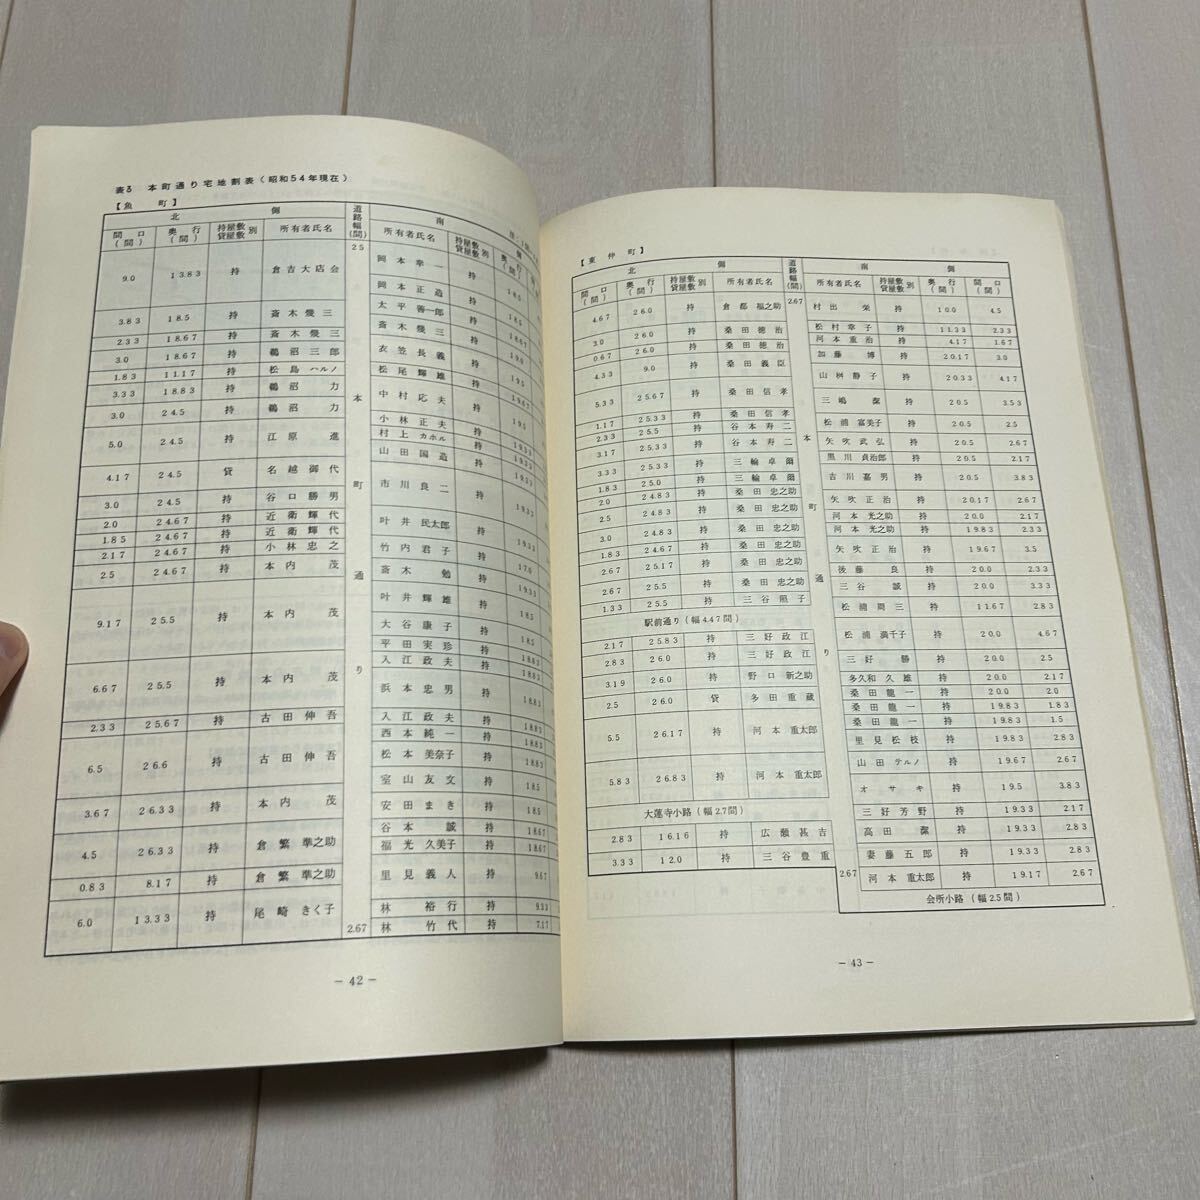 表3 本町通り宅地割表(昭和54年現在)
【魚 町】
北 側 道路幅(間) 南
間口(間) 奥行(間) 持屋敷貸屋敷別 所有者氏名 所有者氏名 持屋敷貸屋敷別 奥行(間)
2.5
9.0 13.83 持 倉吉大店会
3.83 18.5 持 斎木幾三
2.33 18.67 持 斎木幾三
3.0 18.67 持 鵜沼三郎
1.83 11.17 持 松島ハルノ
3.33 18.83 持 鵜沼 力
3.0 24.5 持 鵜沼 力
5.0 24.5 持 江原 進
4.17 24.5 貸 名越御代
3.0 24.5 持 谷口勝男
2.0 24.67 持 近衛輝代
1.85 24.67 持 近衛輝代
2.17 24.67 持 小林忠之
2.5 24.67 持 本内 茂
9.17 25.5 持 本内 茂
6.67 25.5 持 本内 茂
2.33 25.67 持 古田伸吾
6.5 26.6 持 古田伸吾
3.67 26.33 持 本内 茂
4.5 26.33 持 倉繁準之助
0.83 8.17 持 倉繁準之助
6.0 13.33 持 尾崎きく子
本町通り
2.67
岡本幸一 持 18.5
岡本正造
太平善一郎 持 18.5
斎木幾三 持 18.67
衣笠長義 持 19.0
松尾輝雄 持 19.5
中村応夫 持 19.67
小林正夫 持 19.5
村上カホル 持 19.33
山田国造 持 19.33
市川良二 持 19.33
叶井民太郎 持 19.33
竹内君子 持 17.0
斎木 勉 持 19.33
叶井輝雄 持 18.5
大谷康子 持 18.5
平田実珍 持 18.83
入江政夫 持 18.83
浜本忠男 持 18.83
入江政夫 持 18.83
西本純一 持 18.83
松本美奈子 持 18.83
室山友文 持 18.5
安田まき 持 18.5
谷本 誠 持 18.67
福光久美子 持 18.67
里見義人 持 9.67
林 裕行 持 9.33
林 竹代 持 7.17
— 42 —
【東 仲 町】
北 側 道路幅(間) 南 側
間口(間) 奥行(間) 持屋敷貸屋敷別 所有者氏名 所有者氏名 持屋敷貸屋敷別 奥行(間) 間口(間)
2.67
4.67 26.0 持 倉都福之助
3.0 26.0 持 桑田徳治
0.67 26.0 持 桑田徳治
4.33 9.0 持 桑田義臣
5.33 25.67 持 桑田信孝
1.17 25.33 持 桑田信孝
2.33 25.5 持 谷本寿二
3.17 25.33 持 谷本寿二
3.33 25.33 持 三輪卓爾
1.83 25.0 持 三輪卓爾
2.0 24.83 持 桑田忠之助
2.5 24.83 持 桑田忠之助
3.0 24.83 持 桑田忠之助
1.83 24.67 持 桑田忠之助
2.67 25.17 持 桑田忠之助
2.67 25.5 持 桑田忠之助
1.33 25.5 持 三谷照子
駅前通り(幅4.47間)
2.17 25.83 持 三好政江
2.83 26.0 持 三好政江
3.19 26.0 持 野口新之助
2.5 26.0 貸 多田重蔵
5.5 26.17 持 河本重太郎
5.83 26.83 持 河本重太郎
大蓮寺小路(幅2.7間)
2.83 16.16 持 広瀬甚吉
3.33 12.0 持 三谷豊重
本町通り
2.67
村出 栄 持 10.0 4.5
松村幸子 持 11.33 2.33
河本重治 持 4.17 1.67
加藤 博 持 20.17 3.0
山桝静子 持 20.33 4.17
三嶋 潔 持 20.5 3.53
松浦富美子 持 20.5 2.5
矢吹武弘 持 20.5 2.67
黒川貞治郎 持 20.5 2.17
吉川嘉男 持 20.5 3.83
矢吹正治 持 20.17 2.67
河本光之助 持 20.0 2.17
河本光之助 持 19.83 2.33
矢吹正治 持 19.67 3.5
後藤 良 持 20.0 3.33
三谷 誠 持 20.0 3.33
松浦周三 持 11.67 2.83
松浦満千子 持 20.0 4.67
三好 勝 持 20.0 2.5
多久和久雄 持 20.0 2.17
桑田龍一 持 20.0 2.0
桑田龍一 持 19.83 1.83
桑田龍一 持 19.83 1.5
里見松枝 持 19.83 2.83
山田テルノ 持 19.67 2.67
オサキ 持 19.5 3.83
三好芳野 持 19.33 2.17
高田 潔 持 19.33 2.83
妻藤五郎 持 19.33 2.83
河本重太郎 持 19.17 2.67
会所小路(幅2.5間)
— 43 —